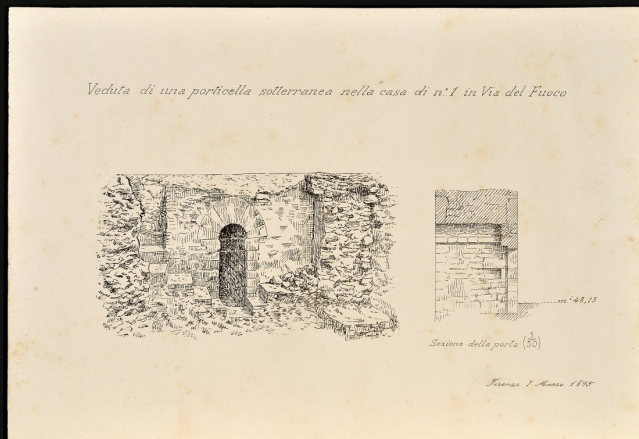 Veduta di una porticella sotterranea nella casa di n.º 1 in Via del Fuoco
m.ⁱ 48,13
Sezione della porta (1/50)
Firenze 7 Marzo 1895